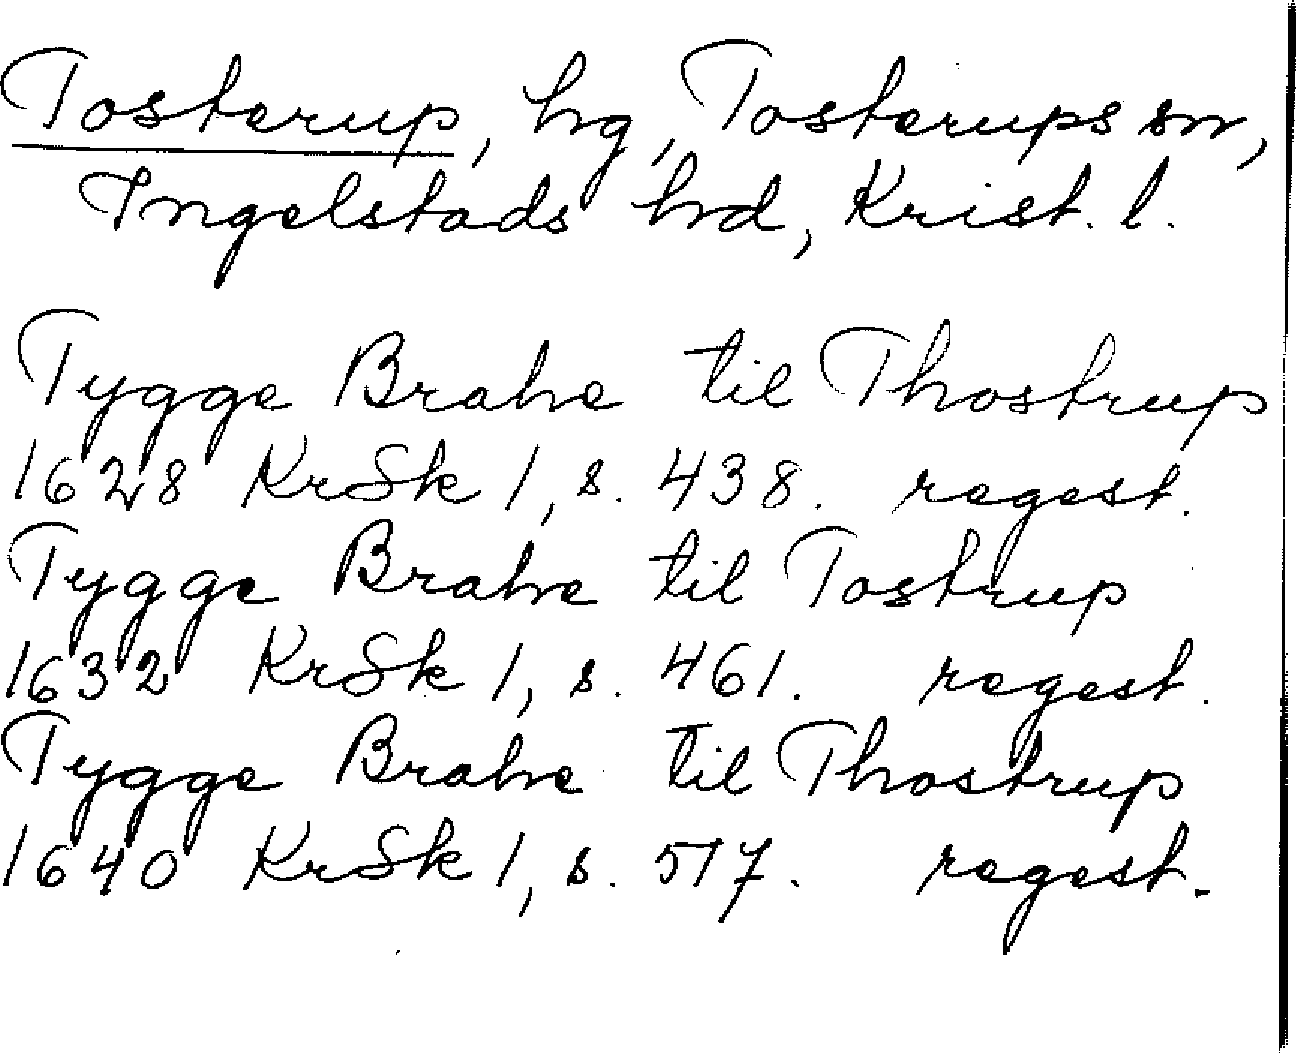 Tosterup, hg, Tosterups sn,
Ingelstads hrd, Krist. l.
Tygge Brahe til Thostrup
1628 KrSk 1, s. 438. regest.
Tygge Brahe til Tostrup
1632 KrSk 1, s. 461. regest.
Tygge Brahe til Thostrup
1640 KrSk 1, s. 517. regest.